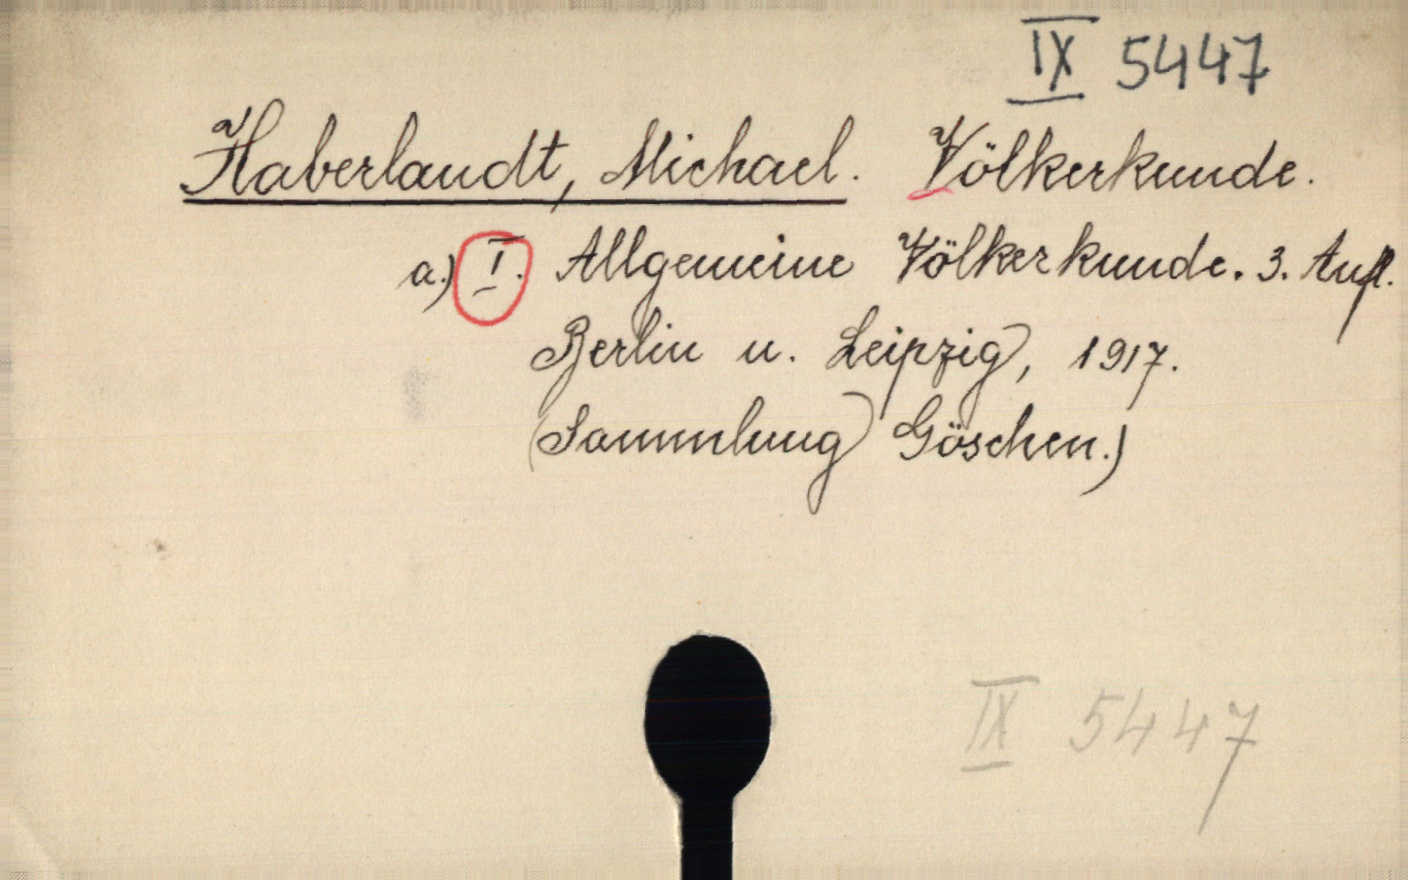 IX 5447
Haberlandt, Michael. Völkerkunde.
a.) I. Allgemeine Völkerkunde. 3. Aufl.
Berlin u. Leipzig, 1917.
(Sammlung Göschen.)
IX 5447